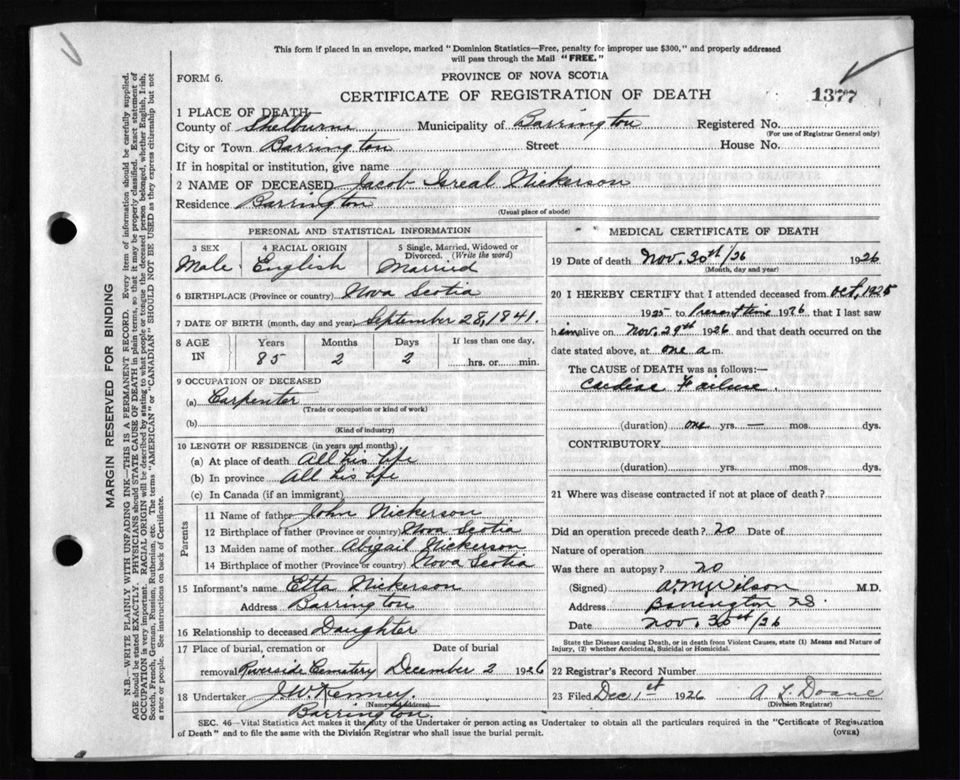 This form if placed in an envelope, marked "Dominion Statistics—Free, penalty for improper use $300," and properly addressed
will pass through the Mail "FREE."
FORM 6.
PROVINCE OF NOVA SCOTIA
CERTIFICATE OF REGISTRATION OF DEATH
1377
1 PLACE OF DEATH—
County of Shelburne Municipality of Barrington Registered No.
(For use of Registrar General only)
City or Town Barrington Street House No.
If in hospital or institution, give name
2 NAME OF DECEASED Jacob Isreal Nickerson
Residence Barrington
(Usual place of abode)
PERSONAL AND STATISTICAL INFORMATION
3 SEX 4 RACIAL ORIGIN 5 Single, Married, Widowed or Divorced. (Write the word)
Male English Married
6 BIRTHPLACE (Province or country) Nova Scotia
7 DATE OF BIRTH (month, day and year) September 28, 1841.
8 AGE IN Years Months Days If less than one day,
85 2 2 hrs. or min.
9 OCCUPATION OF DECEASED
(a) Carpenter
(Trade or occupation or kind of work)
(b)
(Kind of industry)
10 LENGTH OF RESIDENCE (in years and months)
(a) At place of death All his life
(b) In province All his life
(c) In Canada (if an immigrant)
Parents
11 Name of father John Nickerson
12 Birthplace of father (Province or country) Nova Scotia
13 Maiden name of mother Abigail Nickerson
14 Birthplace of mother (Province or country) Nova Scotia
15 Informant's name Etta Nickerson
Address Barrington
16 Relationship to deceased Daughter
17 Place of burial, cremation or removal Date of burial
Riverside Cemetery December 2 1926
18 Undertaker J.W. Kenney.
(Name and address)
Barrington.
MEDICAL CERTIFICATE OF DEATH
19 Date of death Nov. 30th/26 1926
(Month, day and year)
20 I HEREBY CERTIFY that I attended deceased from Oct, 1925
1925 to Present time 1926 that I last saw
him alive on Nov. 29th 1926 and that death occurred on the
date stated above, at one a m.
The CAUSE of DEATH was as follows:—
Cardiac Failure
(duration) one yrs. — mos. dys.
CONTRIBUTORY
(duration) yrs. mos. dys.
21 Where was disease contracted if not at place of death?
Did an operation precede death? no Date of
Nature of operation
Was there an autopsy? no
(Signed) Wilson M.D.
Address Barrington N.S.
Date Nov. 30th/26
State the Disease causing Death, or in death from Violent Causes, state (1) Means and Nature of
Injury, (2) whether Accidental, Suicidal or Homicidal.
22 Registrar's Record Number
23 Filed Dec 1st 1926 A L Doane
(Division Registrar)
SEC. 46—Vital Statistics Act makes it the duty of the Undertaker or person acting as Undertaker to obtain all the particulars required in the "Certificate of Registration
of Death" and to file the same with the Division Registrar who shall issue the burial permit.
(OVER)
MARGIN RESERVED FOR BINDING
N.B.—WRITE PLAINLY WITH UNFADING INK—THIS IS A PERMANENT RECORD. Every item of information should be carefully supplied.
AGE should be stated EXACTLY. PHYSICIANS should STATE CAUSE OF DEATH in plain terms, so that it may be properly classified. Exact statement of
OCCUPATION is very important. RACIAL ORIGIN will be described by stating to what people or tongue the deceased person belonged, whether English, Irish,
Scotch, French, German, Russian, Ruthenian, etc. The terms "AMERICAN" or "CANADIAN" SHOULD NOT BE USED as they express citizenship but not
a race or people. See instructions on back of Certificate.